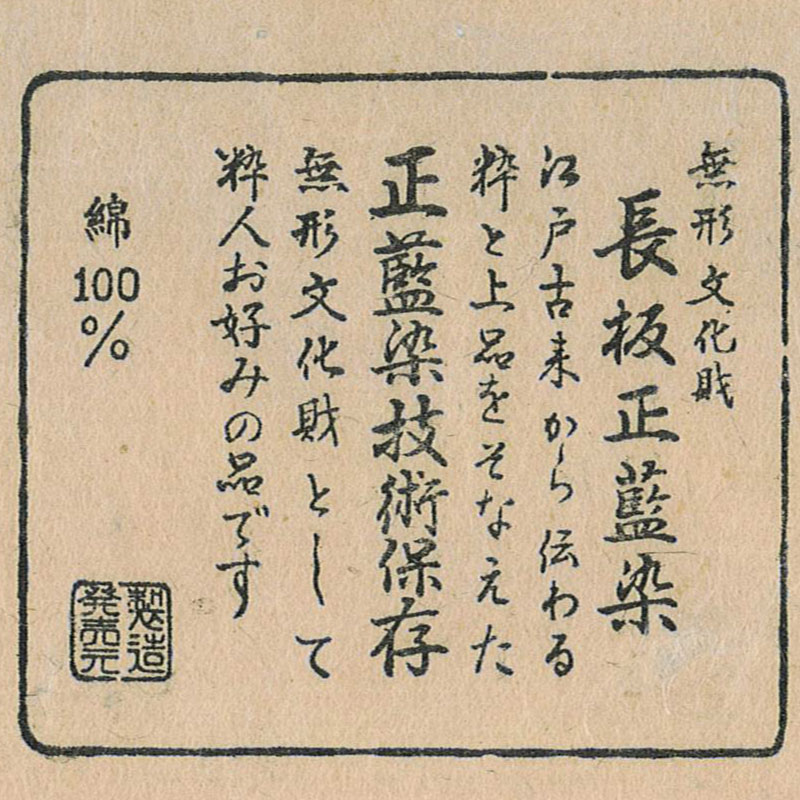 無形文化財
長板正藍染
江戸古来から伝わる
粋と上品をそなえた
正藍染技術保存
無形文化財として
粋人お好みの品です
綿100%
製造
発売元